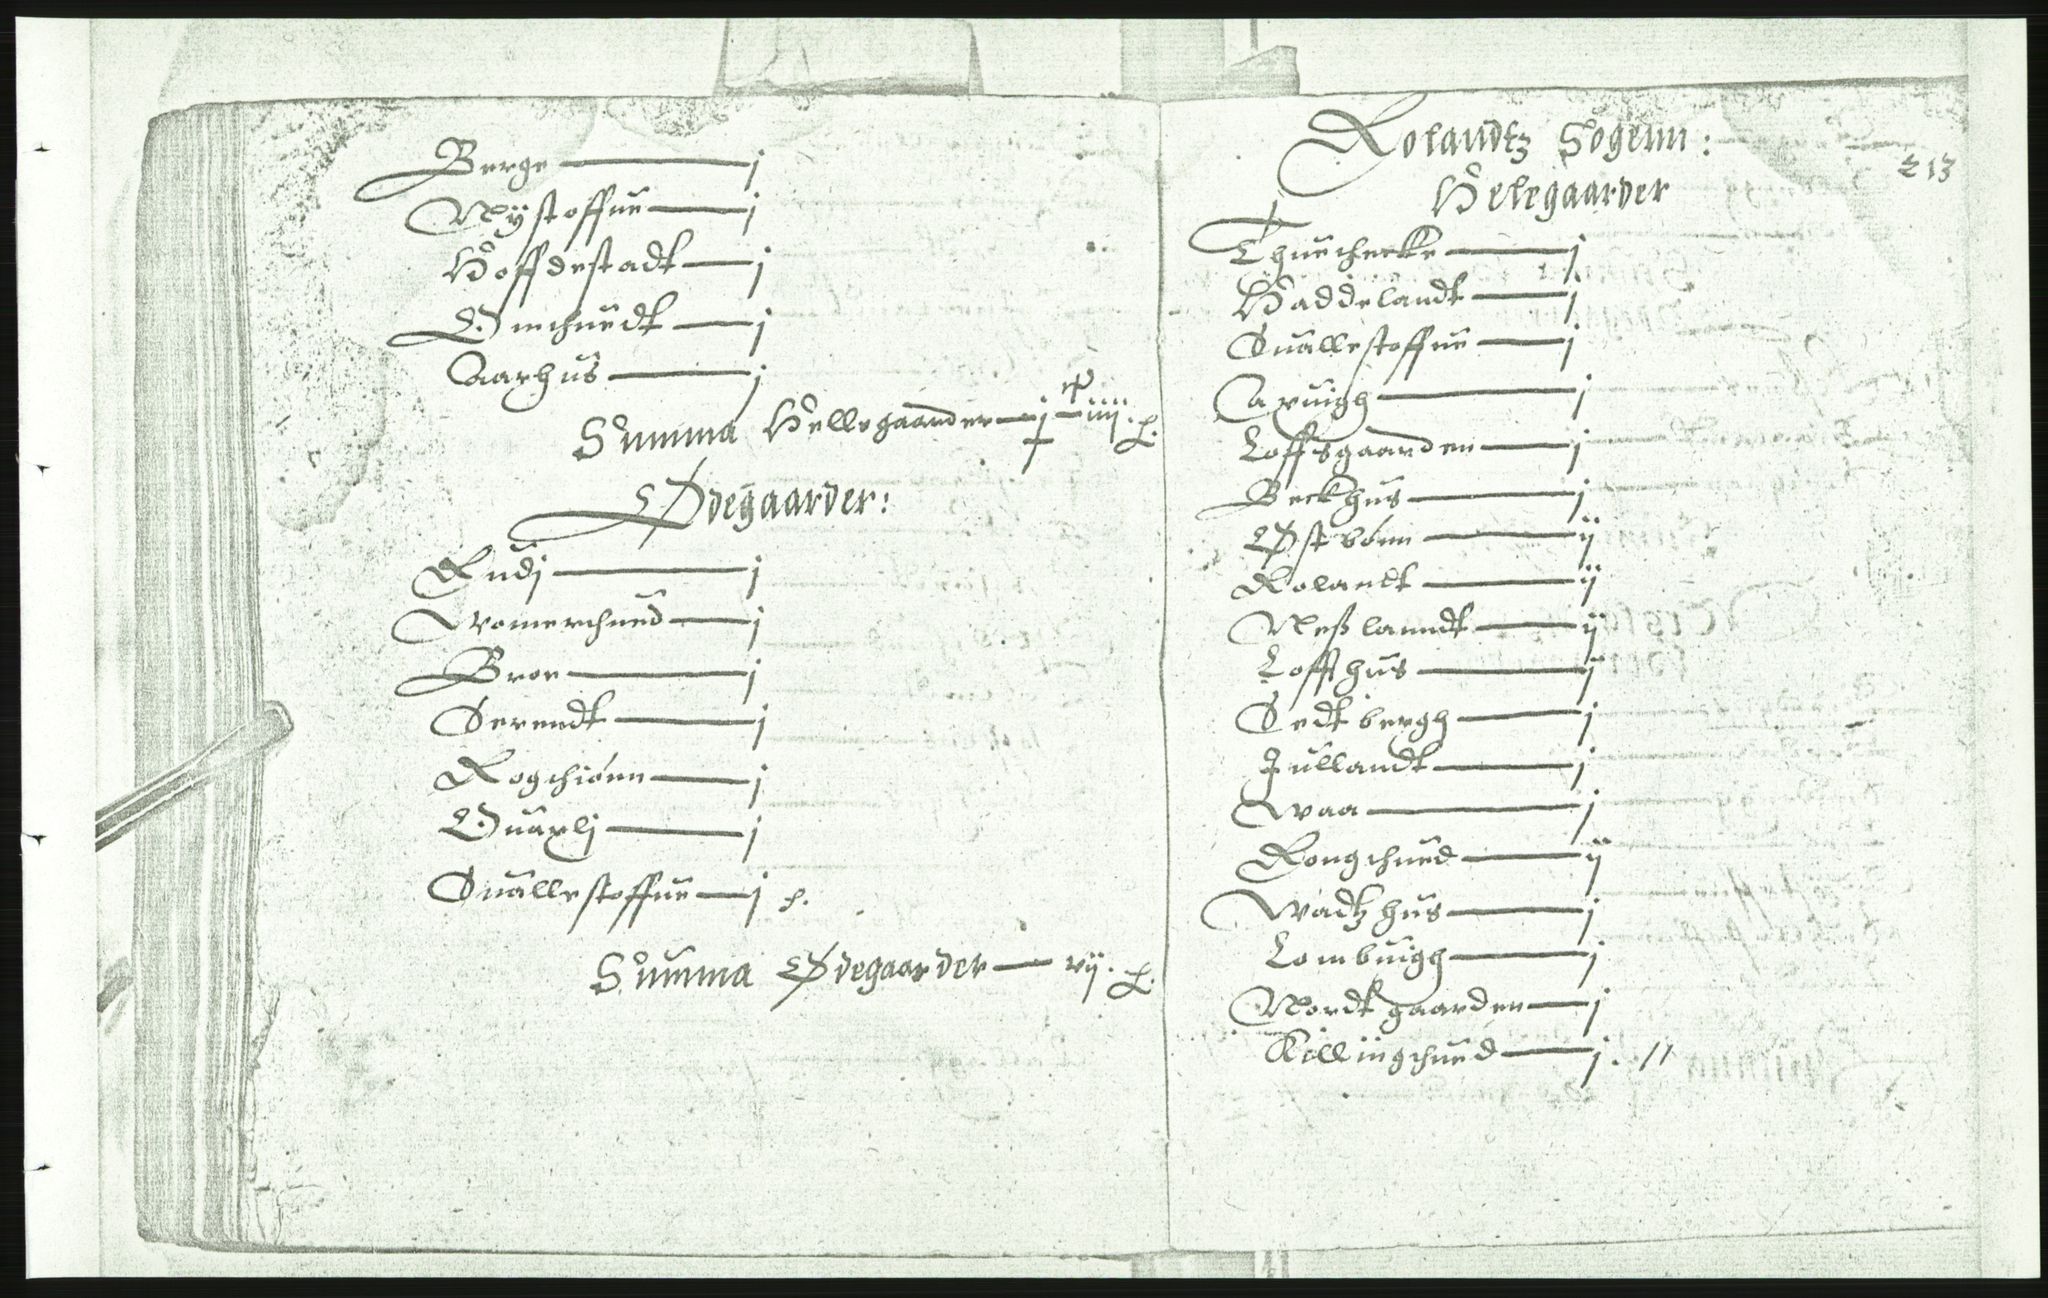 Berge — j
Nÿstoffue — j
Hoffdestadt — j
Omchuedt — j
Aarhus — j
Summa Hellegaarder — j — iiij.
Ødegaarder:
Rudj — j
Womerchued — j
Broe — j
Serendt — j
Rogchiónn — j
Ouerlj — j
Suallestoffue — j
Summa Ødegaarder — vij.
Rolandtz Sogenn:
213
Helegaarder
Thuechecke — j
Haddelandt — j
Suallestoffue — j
Aruigh — j
Loffsgaarden — j
Beckhus — j
Østbónn — ij
Rolandt — ij
Neßlanndt — ij
Loffthus — ij
Sedtbergh — j
Jullandt — j
Waa — j
Rongchued — ij
Wadtzhus — j
Lombuigh — j
Nordtgaarden — j
Killingchued — j. //